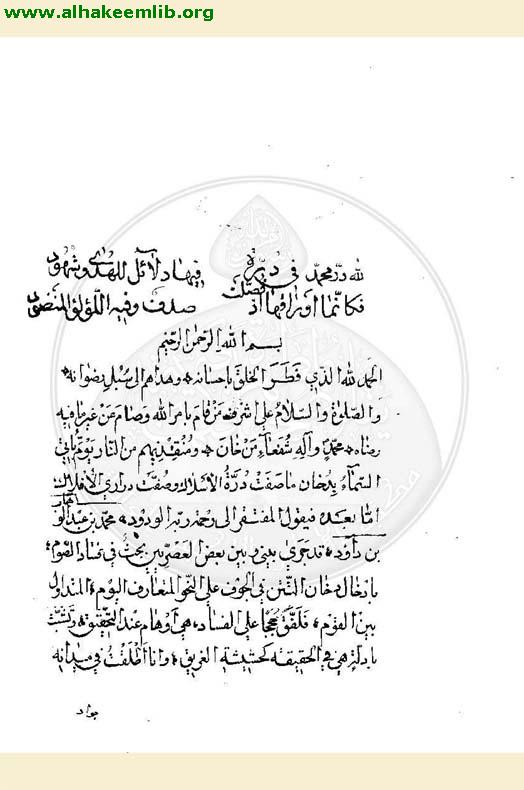 www.alhakeemlib.org
لله در محمد في درة فيها دلائل للهدى وشهود
فكانما اوراقها اذ فصلت صدف وفيه اللؤلؤ المنضود
بسم الله الرحمن الرحيم
الحمد لله الذي فطر الخلق باحسانه وهداهم الى سبل رضوانه
والصلوة والسلام على اشرف من قام بامر الله وصام عن غير ما فيه
رضاه محمد وآله شفعاء من خان ومنقذيهم من النار يوم تأتي
السماء بدخان ما صفت درة الاسلاك وصفت دراري الافلاك
اما بعد فيقول المفتقر الى رحمة ربه الودود محمد بن عبد الجبار
بن داود قد جرى بيني وبين بعض المعاصرين بحث في فساد الصوم
بادخال دخان التتن في الجوف على النحو المتعارف اليوم المتداول
بين القوم فلفق حججا على الفساد هي اوهام عند التحقيق وتشبث
بادلة هي في الحقيقة كحشيشة الغريق وانا اطلقت في ميدانه
جواد